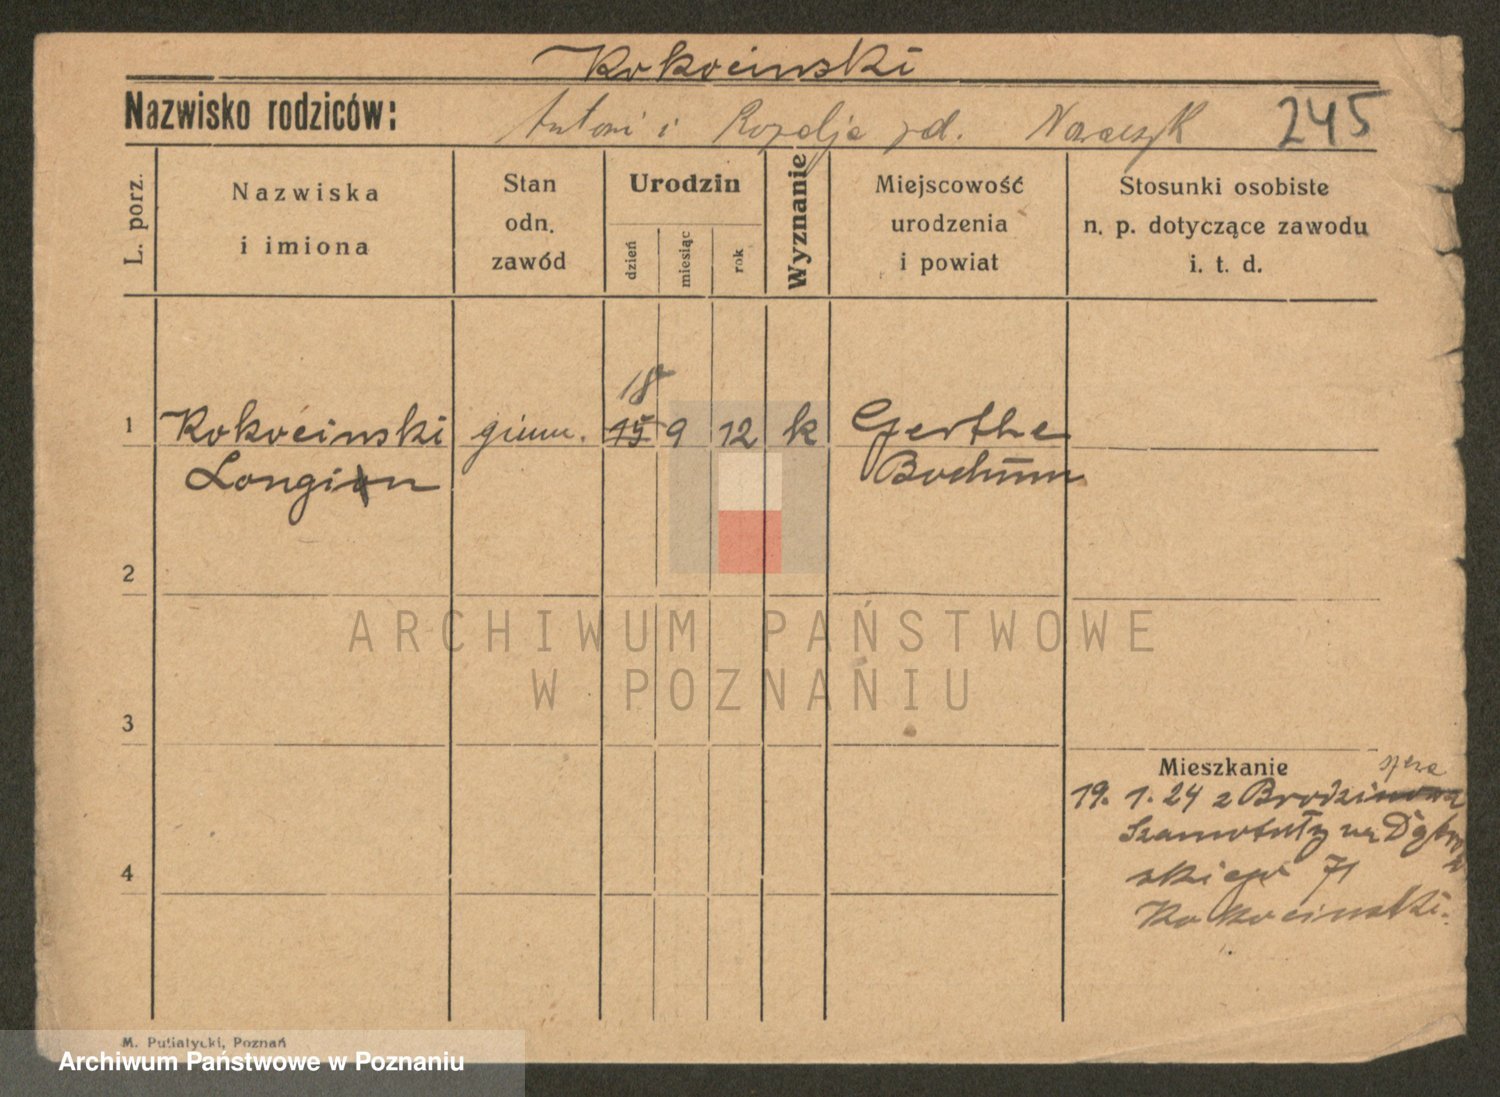 Kokocinski
Nazwisko rodziców: Antoni i Rozalja rd. Nowaczyk 245
L. porz.
Nazwiska
i imiona
Stan
odn.
zawód
Urodzin
dzień
miesiąc
rok
Wyznanie
Miejscowość
urodzenia
i powiat
Stosunki osobiste
n. p. dotyczące zawodu
i. t. d.
18
1 Kokociński gimn. 15 9 12 k Gerthe
Longin Bochum
2
3
4
Mieszkanie
19. 1. 24 z
Szamotuły
skiego 71
Kokocinski.
M. Putiatycki, Poznań
ARCHIWUM PAŃSTWOWE
W POZNANIU
Archiwum Państwowe w Poznaniu